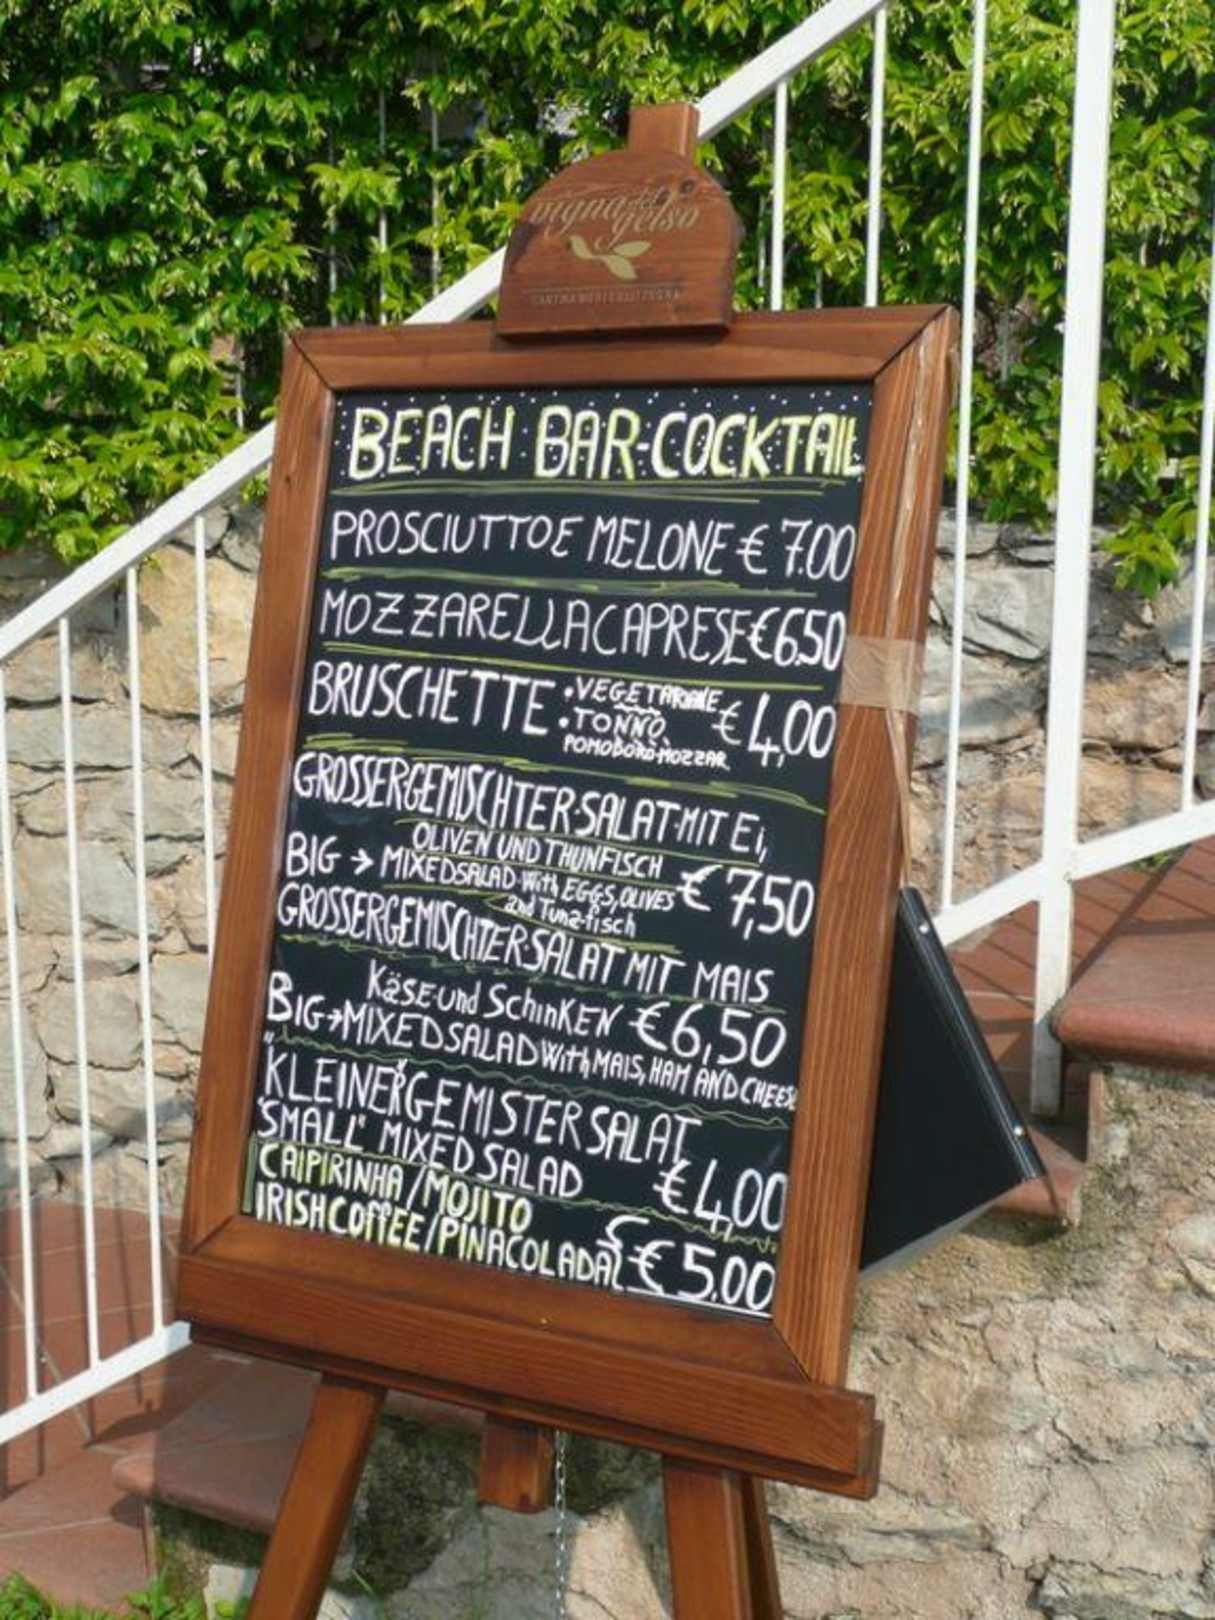 vigna del
gelso
CANTINA MONTECALIZUGNA
BEACH BAR-COCKTAIL
PROSCIUTTO E MELONE € 7.00
MOZZARELLA CAPRESE €6.50
BRUSCHETTE •VEGETARIANE
•TONNO € 4,00
POMODORO-MOZZAR
GROSSERGEMISCHTER-SALAT-MIT Ei,
OLIVEN UND THUNFISCH
BIG → MIXEDSALAD-With EGGS, OLIVES € 7,50
and Tuna-fisch
GROSSERGEMISCHTER-SALAT MIT MAIS
KäSE-und SchinKEN € 6,50
BIG→MIXEDSALAD With MAIS, HAM AND CHEESE
"KLEINER" GEMISTER SALAT
"SMALL" MIXED SALAD € 4,00
CAIPIRINHA/MOJITO
IRISHCOffEE/PINACOLADA € 5.00